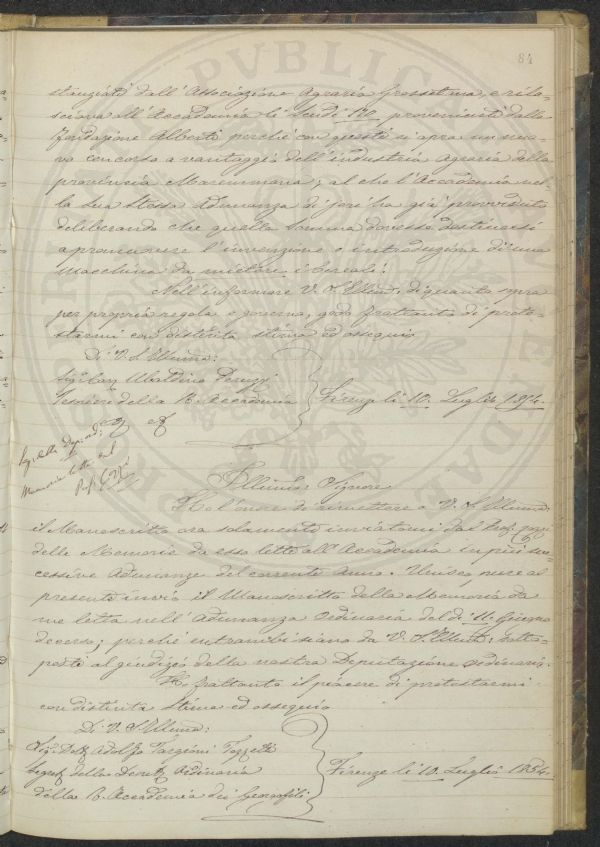 84
stanziati dall'Associazione Agraria Grossetana, e rila-
sciava all'Accademia li Scudi 120. provenienti dalla
fondazione Alberti perchè con questi si apra un nuo-
vo concorso a vantaggio dell'industria agraria della
provincia Maremmana; al che l'Accademia nel-
la sua stessa Adunanza di jeri ha già provvisto
deliberando che quella somma dovesse destinarsi
a promuovere l'invenzione o introduzione di una
Macchina da mietere i Cereali.
Nell'informare V. S. Illma: di quanto sopra
per propria regola e governo, godo frattanto di prote-
starmi con distinta stima ed ossequio
Di V. S. Illuma:
Ubaldino Peruzzi
Tesoriere della R. Accademia
Firenze li 10. Luglio 1854.
Memorie lette dal
Prof:
Illmo: Signore
Ho l'onore di rimettere a V. S. Illuma:
il Manoscritto ora solamente inviatomi dal Prof:
delle Memorie da esso lette all'Accademia in più suc-
cessive Adunanze del corrente Anno. Unisco pure al
presente invio il Manoscritto della Memoria da
me letta nell'Adunanza Ordinaria del dì 11. Giugno
decorso; perchè entrambi siano da V. S. Illma: sotto-
posti al giudizio della nostra Deputazione Ordinaria.
Ho frattanto il piacere di protestarmi
con distinta Stima ed ossequio
Di V. S. Illuma:
Sig: Dott: Adolfo Targioni Tozzetti
Segret: della Deput: Ordinaria
della R. Accademia dei Georgofili
Firenze li 10. Luglio 1854.